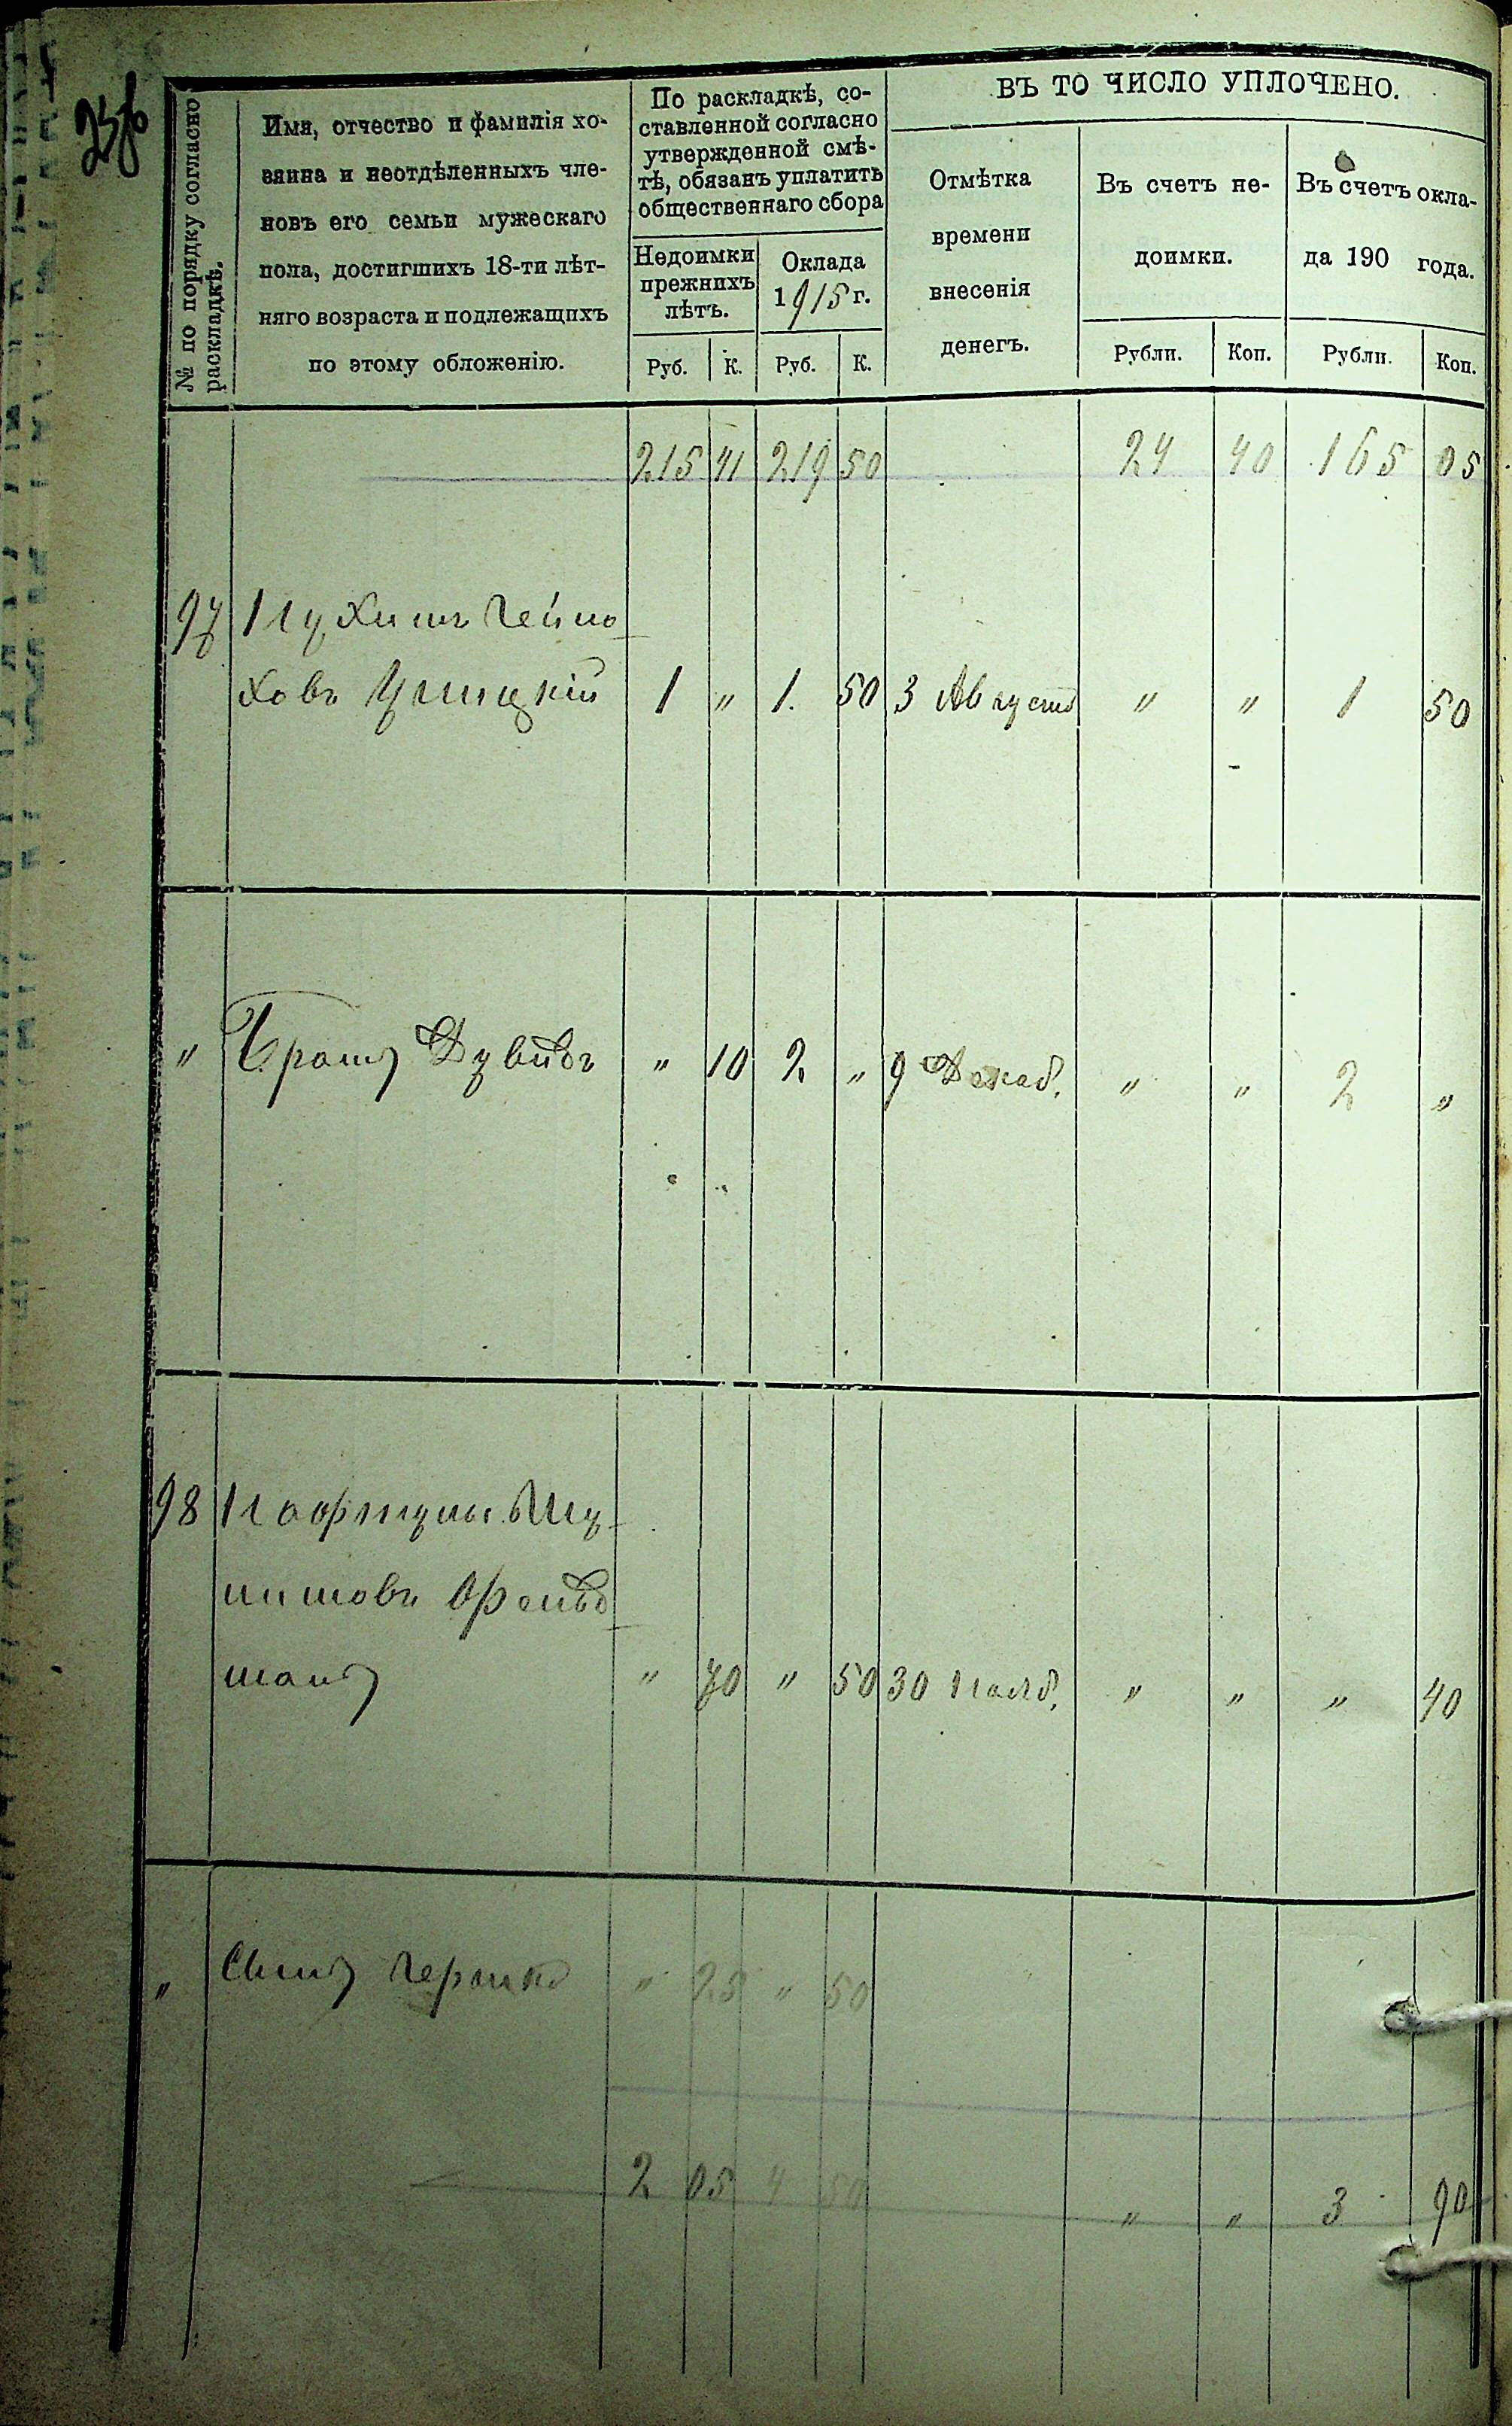 ВЪ ТО ЧИСЛО УПЛОЧЕНО.
№ по порядку согласно
раскладкѣ.
Имя, отчество и фамилія хо-
зяина и неотдѣленныхъ чле-
новъ его семьи мужескаго
пола, достигшихъ 18-ти лѣт-
няго возраста и подлежащихъ
по этому обложенію.
По раскладкѣ, со-
ставленной согласно
утвержденной смѣ-
тѣ, обязанъ уплатить
общественнаго сбора
Недоимки
прежнихъ
лѣтъ.
Оклада
1915 г.
Руб. К. Руб. К.
Отмѣтка
времени
внесенія
денегъ.
Въ счетъ не-
доимки.
Рубли. Коп.
Въ счетъ окла-
да 190 года.
Рубли. Коп.
215 41 219 50 24 40 165 05
97
ховъ 1 " 1. 50 3 Августа " " 1 50
" Братъ " 10 2 " 9 Декаб. " " 2 "
98
" 70 " 50 30 Нояб. " " " 40
" Сынъ Гершко " 25 " 50
2 05 4 50 " " 3 90